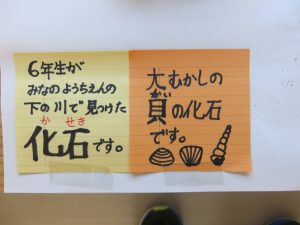 6年生が
みなのようちえんの
下の川で見つけた
かせき
化石です。
大むかしの
かい
貝の化石
です。